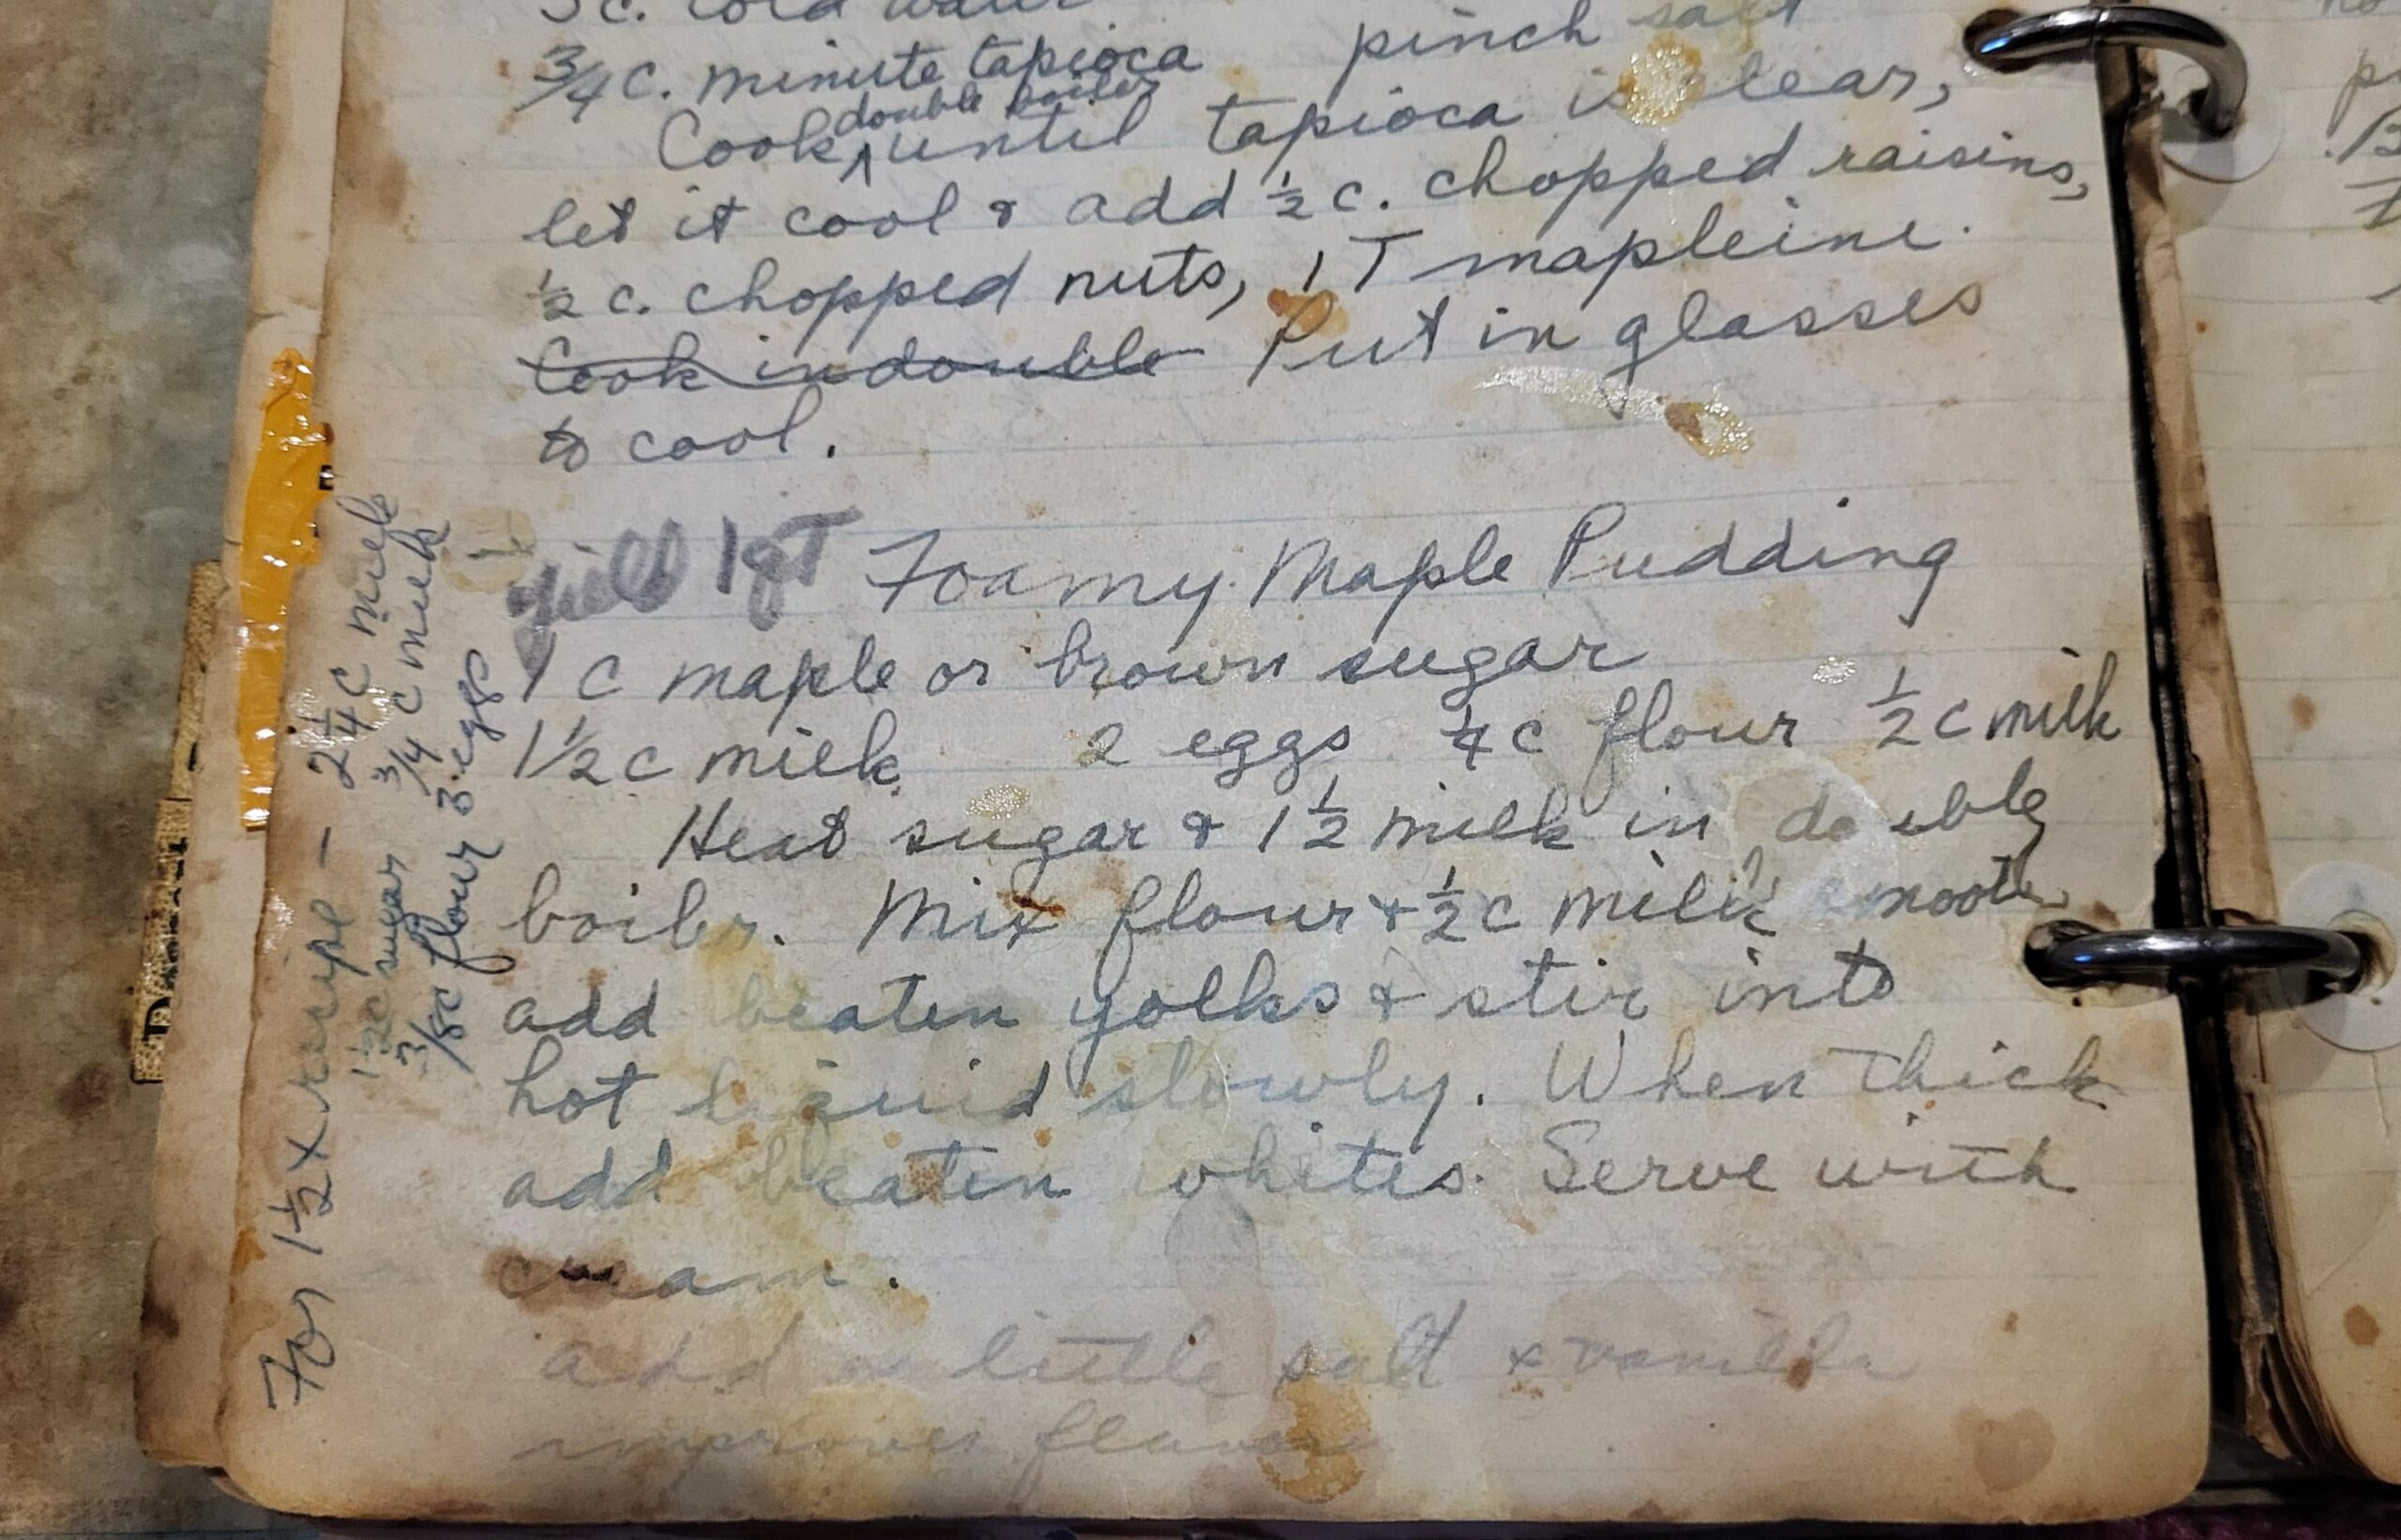 3 c. cold water
pinch salt
3/4 c. minute tapioca
double boiler
Cook ^ until tapioca is clear,
let it cool & add 1/2 c. chopped raisins,
1/2 c. chopped nuts, 1 T mapleine.
Cook in double Put in glasses
to cool.
yield 1 qT Foamy Maple Pudding
1 C maple or brown sugar
1 1/2 C milk 2 eggs 1/4 C flour 1/2 C milk
Heat sugar & 1 1/2 milk in double
boiler. Mix flour + 1/2 C milk smooth
add beaten yolks & stir into
hot liquid slowly. When thick
add beaten whites. Serve with
cream.
add a little salt & vanilla
improves flavor
For 1 1/2 x recipe - 2 1/4 C milk
1 1/2 C sugar 3/4 C milk
3/8 C flour 3 eggs